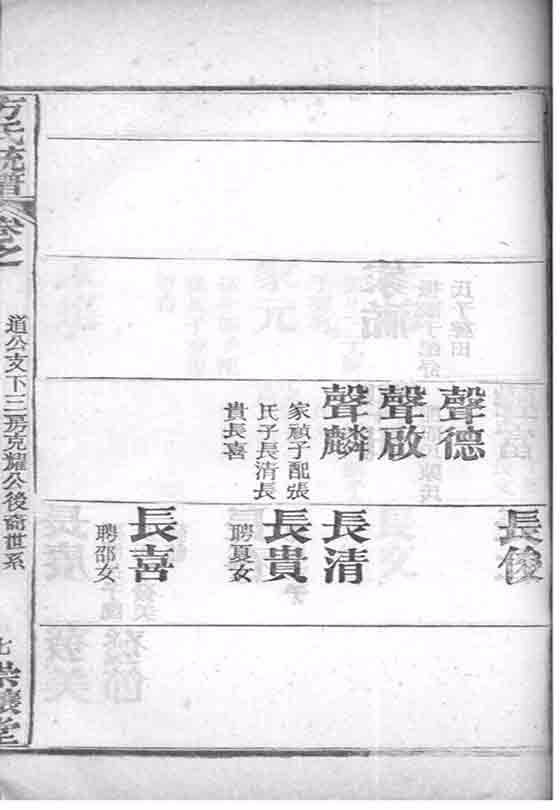 聲德
聲啟
聲麟
家禎子配張
氏子長清長
貴長喜
長俊
長清
長貴
聘夏女
長喜
聘邵女
方氏統譜
卷之
道公支下三房克耀公後裔世系
七
崇讓堂